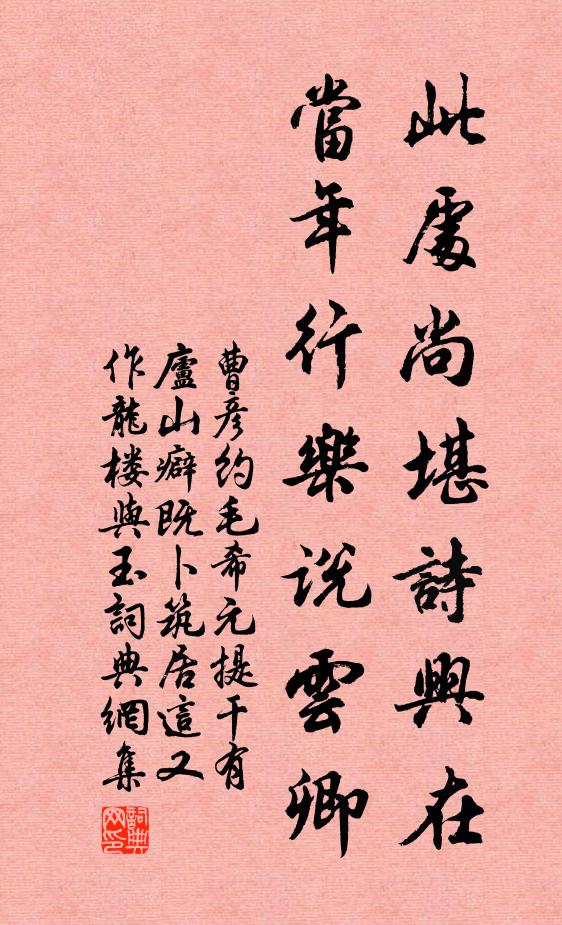 此處尚堪詩興在
當年行樂説雲卿
曹彦約毛希元提干有
廬山癖既卜筑居這又
作龍楼與玉詞典網集
詞典
网印